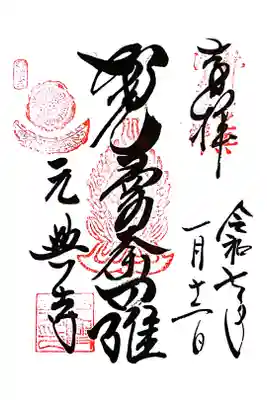 奉拝
令和七年
一月十一日
智光曼荼羅
元興寺